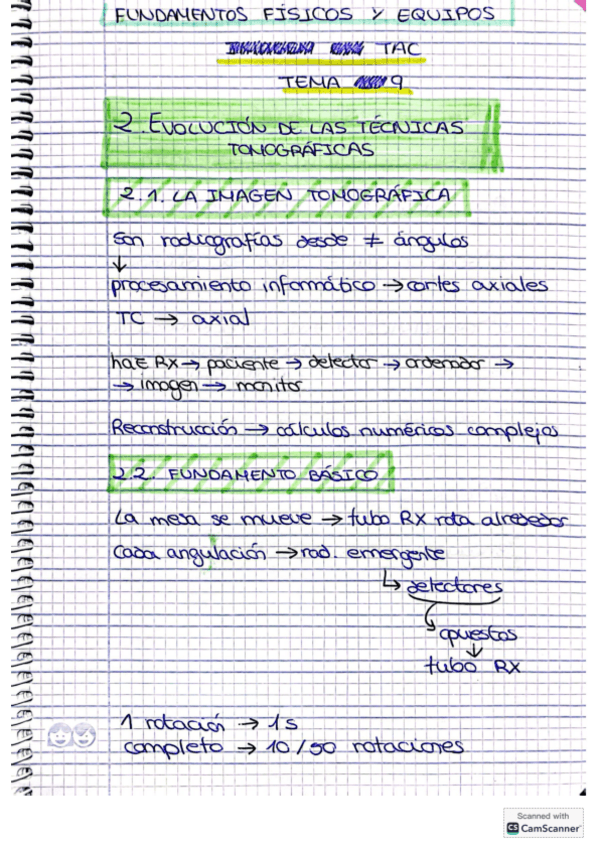 FUNDAMENTOS FÍSICOS Y EQUIPOS
TAC
TEMA 9
2. EVOLUCIÓN DE LAS TÉCNICAS
TOMOGRÁFICAS
2.1. LA IMAGEN TOMOGRÁFICA
Son radiografías desde ≠ ángulos
↓
procesamiento informático → cortes axiales
TC → axial
haE RX → paciente → detector → ordenador →
→ imagen → monitor
Reconstrucción → cálculos numéricos complejos
2.2. FUNDAMENTO BÁSICO
La mesa se mueve → tubo RX rota alrededor
Cada angulación → rad. emergente
↳ detectores
opuestos
↓
tubo RX
1 rotación → 1s
completo → 10/50 rotaciones
Scanned with
CS CamScanner